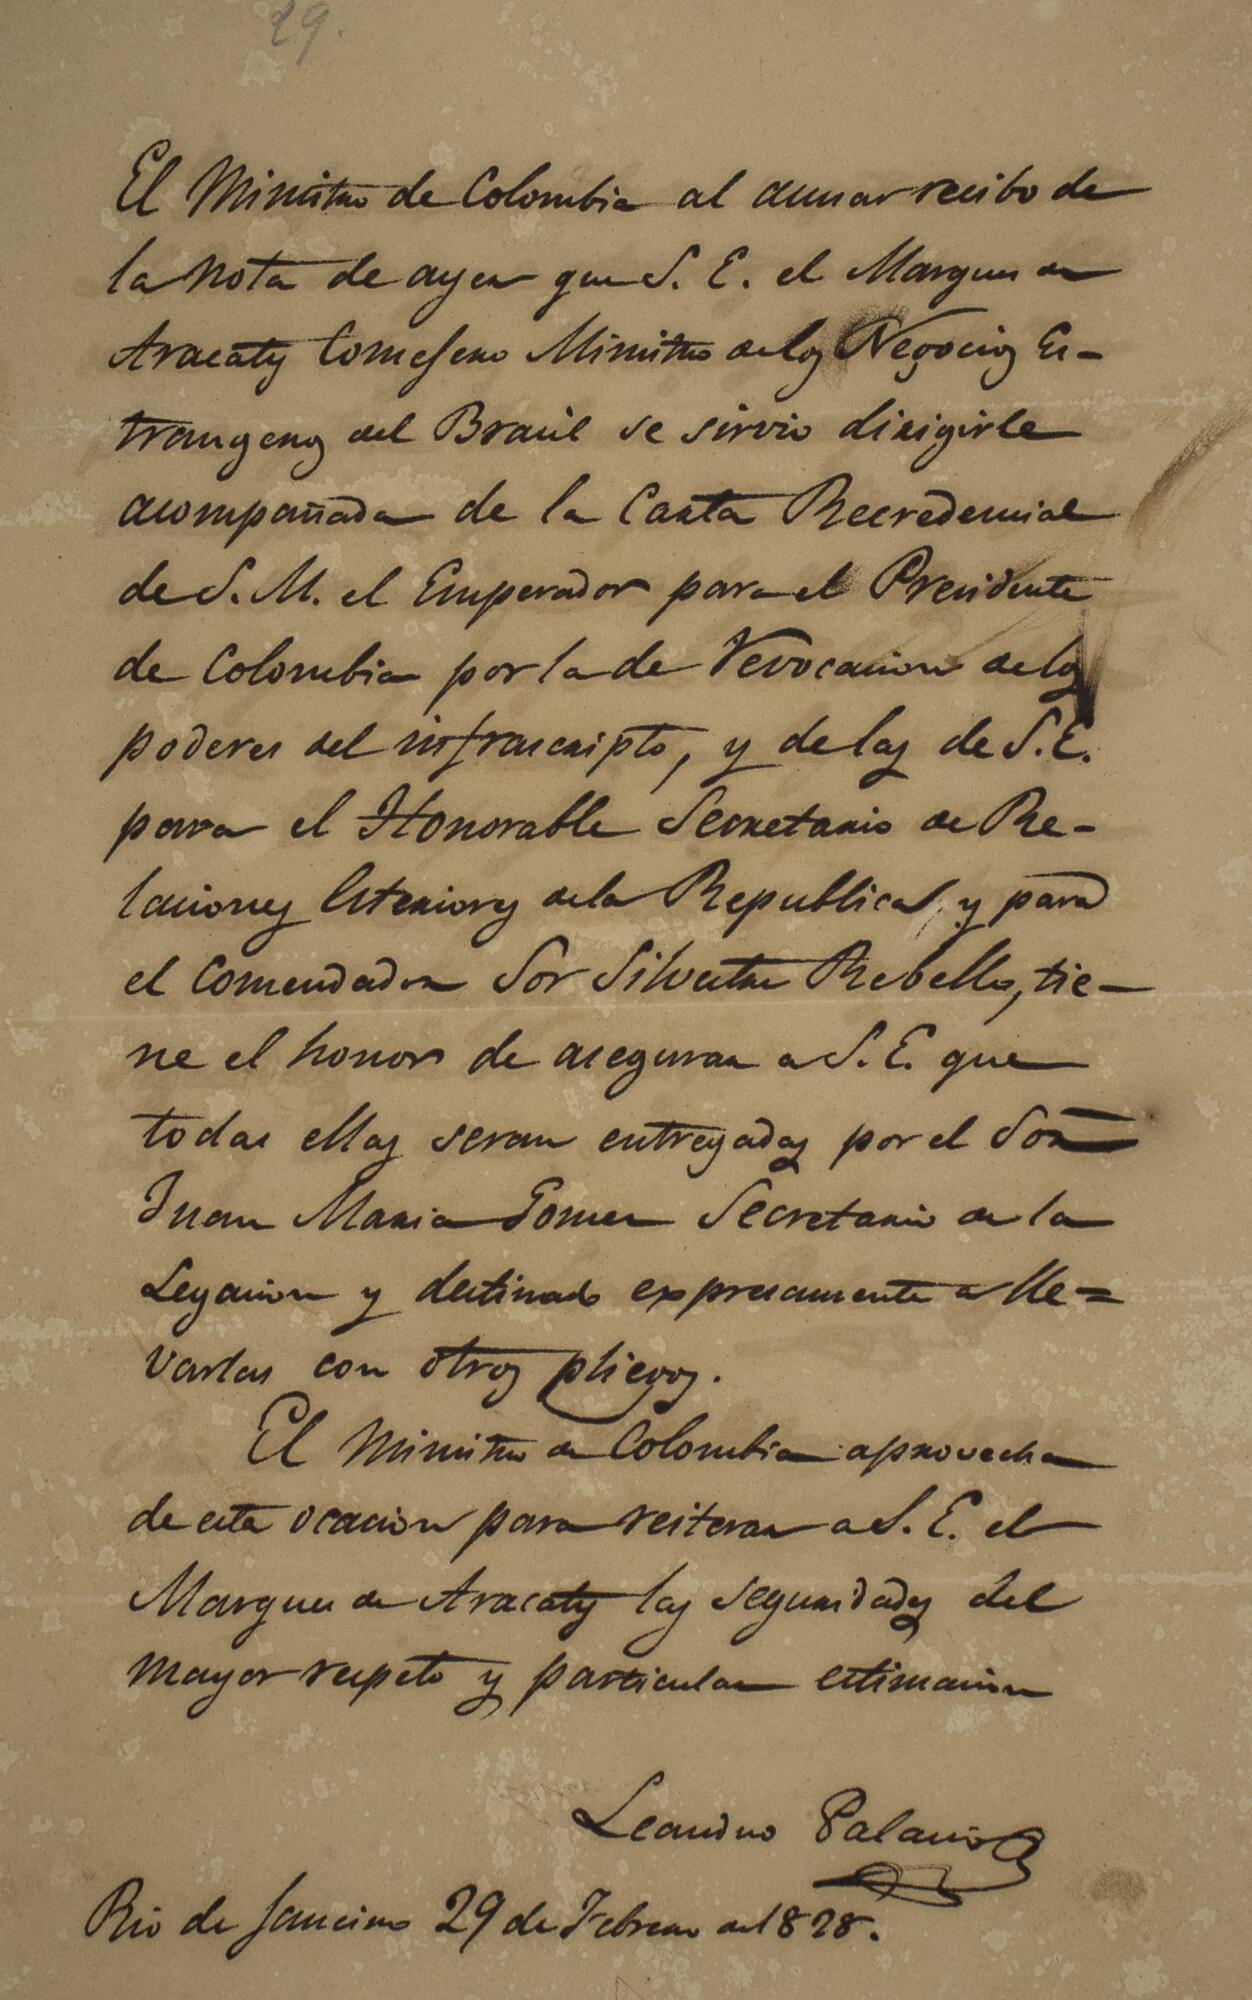 29.
El Ministro de Colombia al acusar recibo de
la Nota de ayer que S. E. el Marques de
Aracaty Consejero Ministro de los Negocios Es-
trangeros del Brasil se sirvio dirigirle
acompañada de la Carta Recredencial
de S. M. el Emperador para el Presidente
de Colombia por la de Revocacion de los
poderes del infrascripto, y de las de S. E.
para el Honorable Secretario de Re-
laciones Esteriores de la Republica, y para
el Comendador Sor Silvestre Rebello, tie-
ne el honor de asegurar a S. E. que
todas ellas seran entregadas por el Sor
Juan Maria Gomez Secretario de la
Legacion y destinado expresamente a lle=
varlas con otros pliegos.
El Ministro de Colombia aprovecha
de esta ocacion para reiterar a S. E. el
Marques de Aracaty las seguridades del
mayor respeto y particular estimacion
Leandro Palacios
Rio de Janeiro 29 de Febrero de 1828.